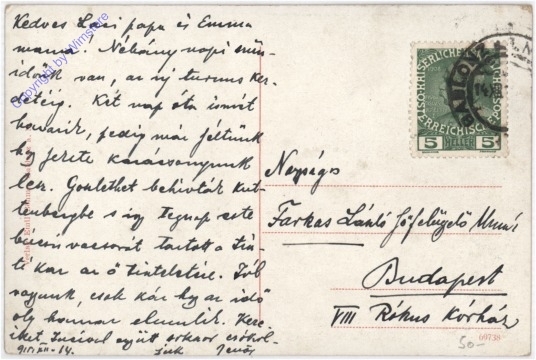 Kedves Laci papa és Emma
mama! Néhány napi szün-
idonk van, az új turnus kez-
detéig. Két nap óta ismét
havazik, pedig már féltünk
hogy fekete karácsonyunk
lesz. behivták Kut-
tenbergbe s így Tegnap este
bucsu vacsorát tartott a Tisz-
ti kar az ő tiszteletére. Jól
vagyunk, csak kár hogy az idő
oly hamar elmulik. Keze-
iket Zsuzsival együtt sokszor csókol-
915 XII-14. Jenő
Copyright by Wimstore
KAISERLICHE KÖNIGLICHE
ÖSTERREICHISCHE POST
5 HELLER 5
Nagyságos
Farkas László főfelügyelő Urnak
Budapest
VIII Rókus Kórház
69738
50-